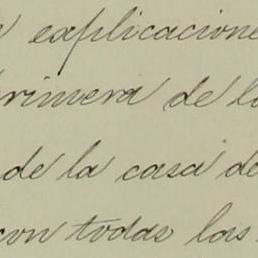 explicacione
primera de l
de la casa de
con todas las